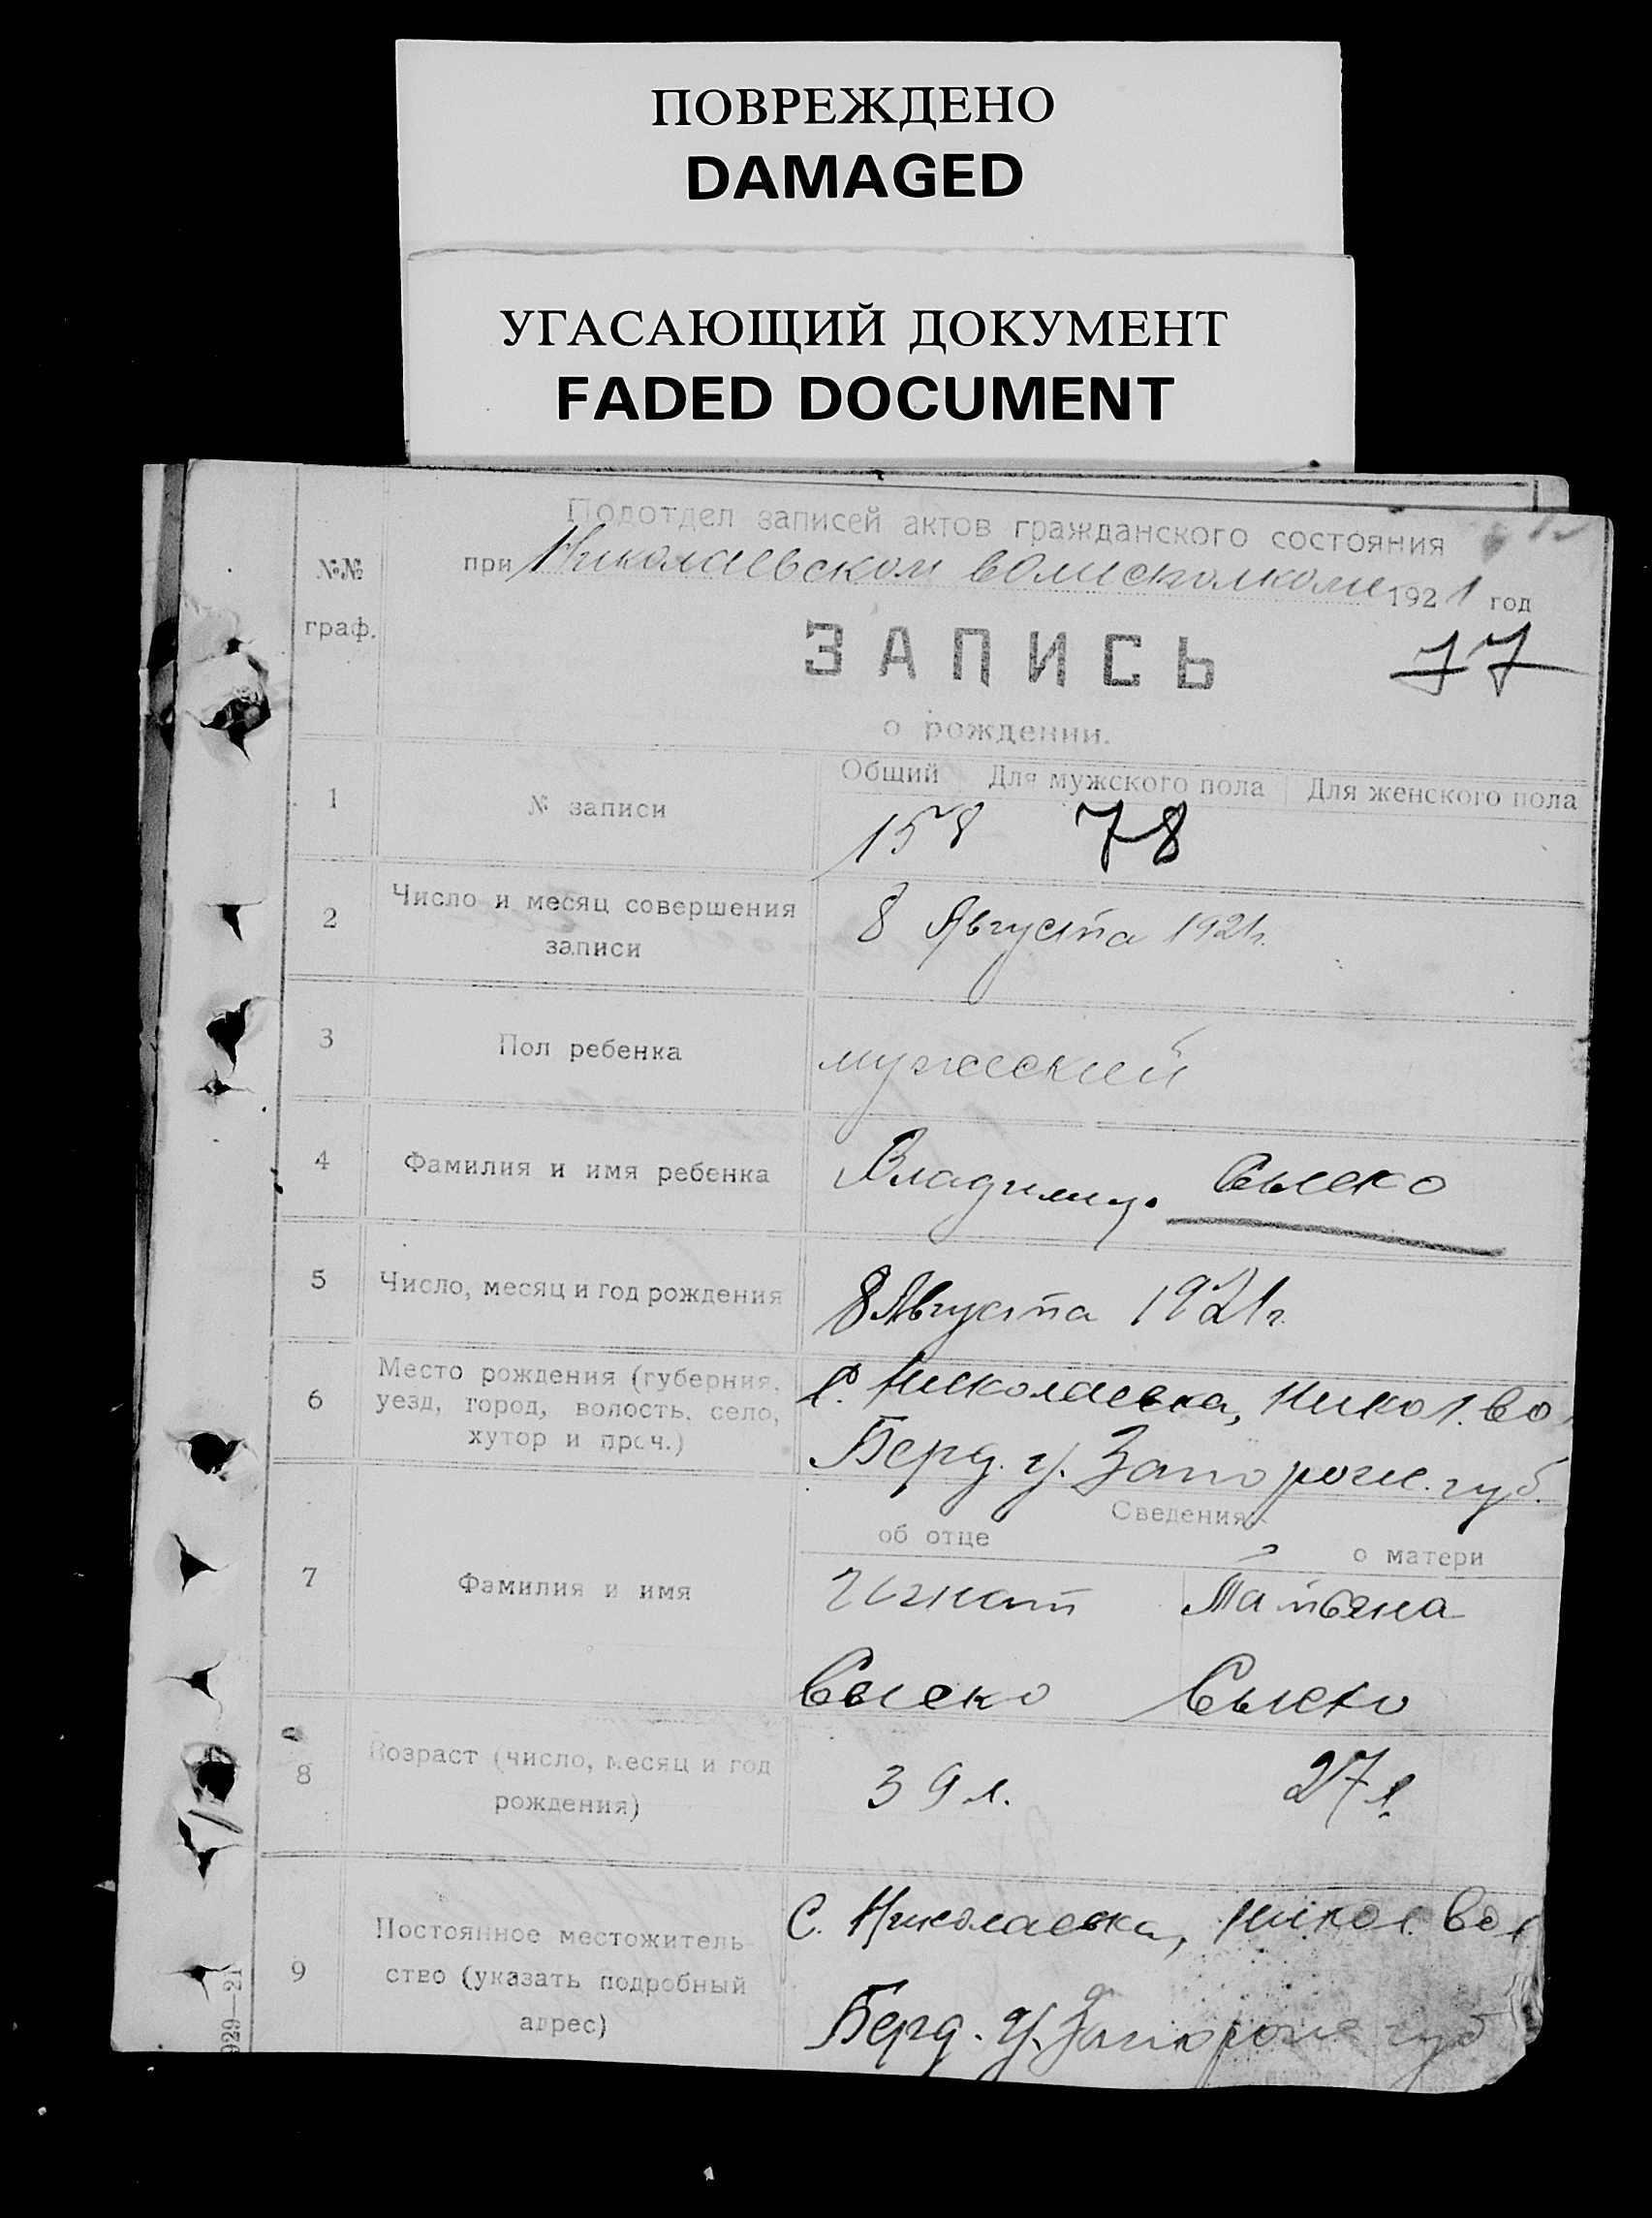 ПОВРЕЖДЕНО
DAMAGED
УГАСАЮЩИЙ ДОКУМЕНТ
FADED DOCUMENT
Подотдел записей актов гражданского состояния
при Николаевском волисполкоме 1921 год
№№
граф.
ЗАПИСЬ
77
о рождении.
Общий Для мужского пола Для женского пола
1 № записи 158 78
2 Число и месяц совершения
записи
8 Августа 1921г.
3 Пол ребенка мужеский
4 Фамилия и имя ребенка Владимир Сыско
5 Число, месяц и год рождения 8 Августа 1921г.
6 Место рождения (губерния,
уезд, город, волость, село,
хутор и проч.)
С. Николаевка, Никол. во
Берд. у. Запорож. губ.
Сведения
об отце о матери
7 Фамилия и имя
Игнат Татьяна
Сыско Сыско
8 Возраст (число, месяц и год
рождения)
39 л. 27 л.
9 Постоянное местожитель
ство (указать подробный
адрес)
С. Николаевка, Никол. вол
Берд. у. Запорож губ
929—21